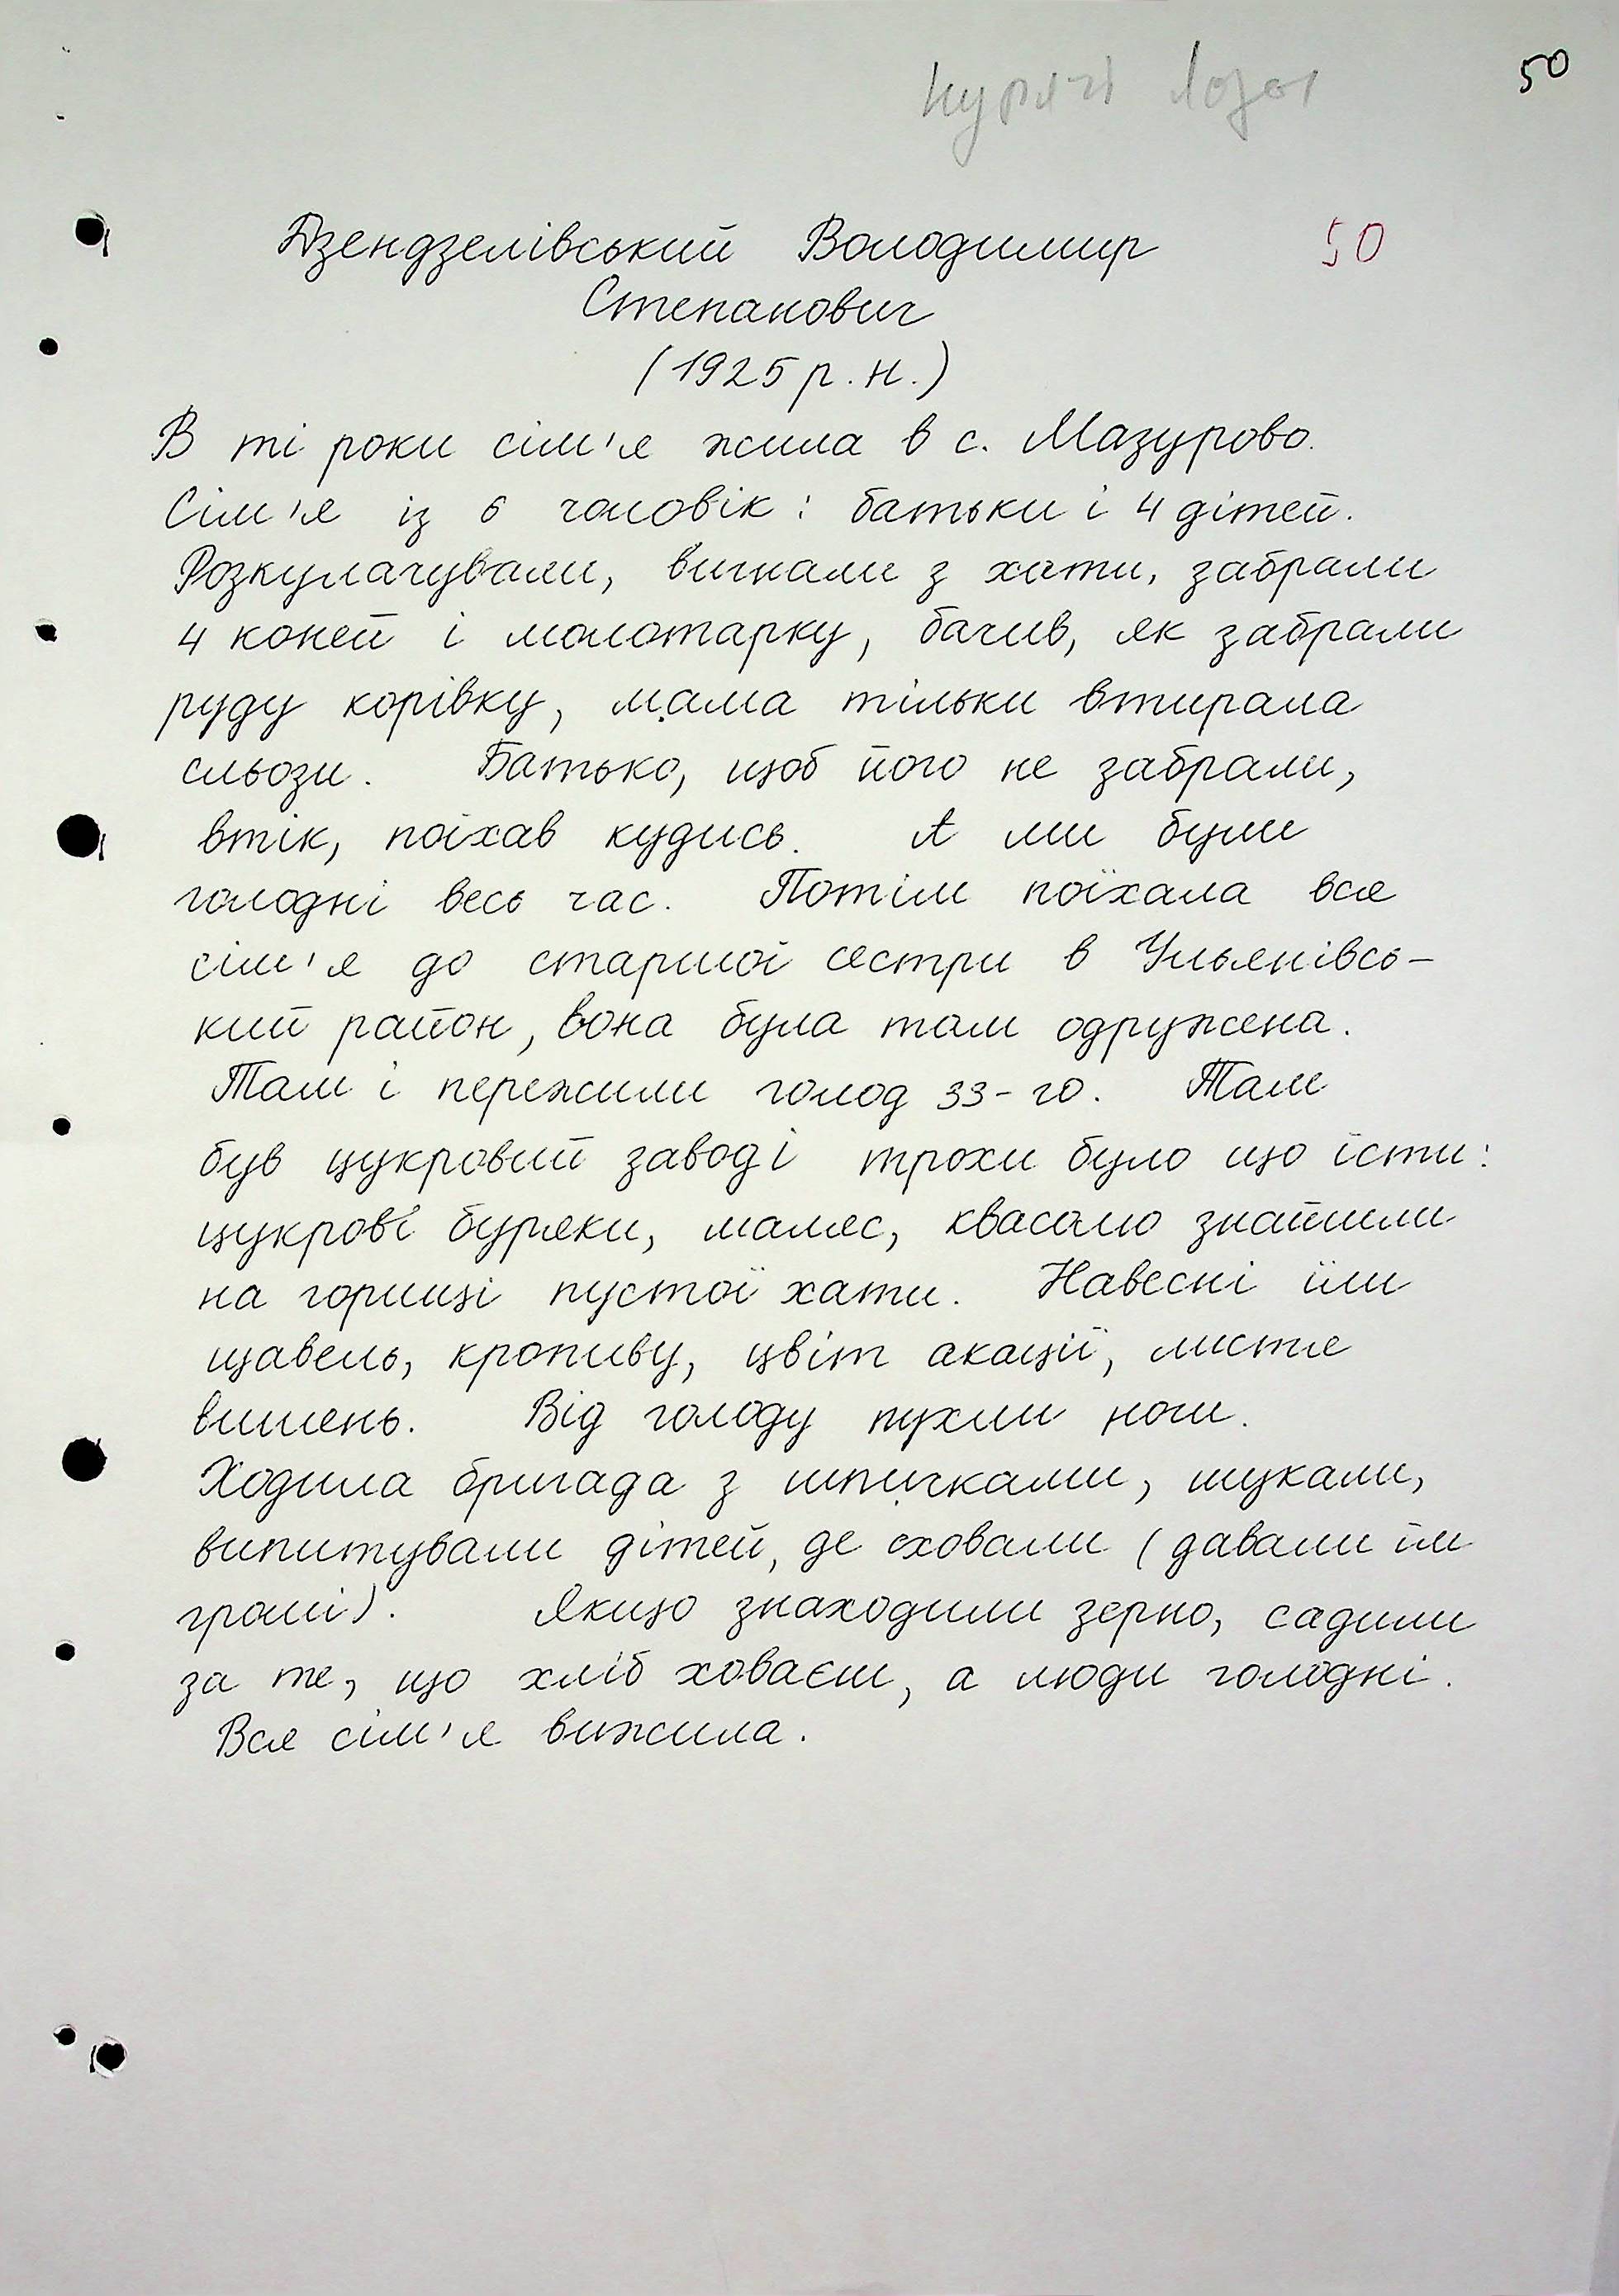 Курячі Лози
50
Дзендзелівський Володимир
50
Степанович
(1925 р. н.)
В ті роки сім'я жила в с. Мазурово.
Сім'я із 6 чоловік: батьки і 4 дітей.
Розкулачували, вигнали з хати, забрали
4 коней і молотарку, бачив, як забрали
руду корівку, мама тільки втирала
сльози. Батько, щоб його не забрали,
втік, поїхав кудись. А ми були
голодні весь час. Потім поїхала вся
сім'я до старшої сестри в Ульянівсь-
кий район, вона була там одружена.
Там і пережили голод 33-го. Там
був цукровий завод і трохи було що їсти:
цукрові буряки, маляс, квасолю знайшли
на горищі пустої хати. Навесні їли
щавель, кропиву, цвіт акації, листя
вишень. Від голоду пухли ноги.
Ходила бригада з шпичками, шукали,
випитували дітей, де сховали (давали їм
гроші). Якщо знаходили зерно, садили
за те, що хліб ховаєш, а люди голодні.
Вся сім'я вижила.